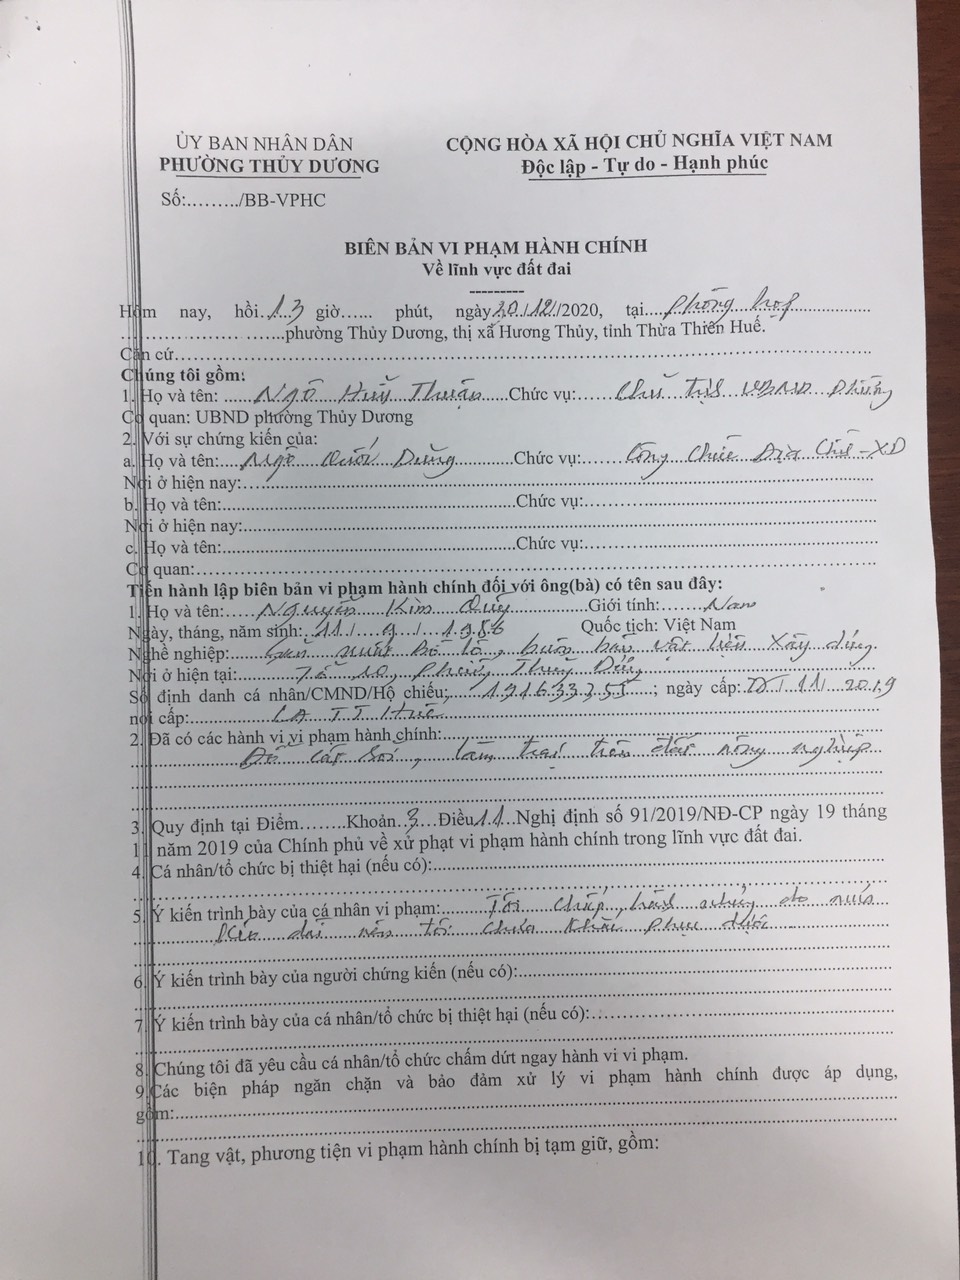 ỦY BAN NHÂN DÂN
PHƯỜNG THỦY DƯƠNG
CỘNG HÒA XÃ HỘI CHỦ NGHĨA VIỆT NAM
Độc lập - Tự do - Hạnh phúc
Số:………/BB-VPHC
BIÊN BẢN VI PHẠM HÀNH CHÍNH
Về lĩnh vực đất đai
Hôm nay, hồi 13 giờ…… phút, ngày 30/12/2020, tại phòng họp
phường Thủy Dương, thị xã Hương Thủy, tỉnh Thừa Thiên Huế.
Căn cứ
Chúng tôi gồm:
1. Họ và tên: Ngô Hữu Thuận Chức vụ: Chủ tịch UBND phường
Cơ quan: UBND phường Thủy Dương
2. Với sự chứng kiến của:
a. Họ và tên: Ngô Quốc Dũng Chức vụ: Công chức Địa Chính-XD
Nơi ở hiện nay:
b. Họ và tên: Chức vụ:
Nơi ở hiện nay:
c. Họ và tên: Chức vụ:
Cơ quan:
Tiến hành lập biên bản vi phạm hành chính đối với ông(bà) có tên sau đây:
1. Họ và tên: Nguyễn Kim Giới tính: Nam
Ngày, tháng, năm sinh: 11/9/1986 Quốc tịch: Việt Nam
Nghề nghiệp: buôn bán vật liệu xây dựng
Nơi ở hiện tại: Tổ 10, phường Thủy
Số định danh cá nhân/CMND/Hộ chiếu: 191633251; ngày cấp: /11/2019
nơi cấp: CA TT Huế
2. Đã có các hành vi vi phạm hành chính:
Đổ cát sỏi, làm trại trên đất nông nghiệp
3. Quy định tại Điểm……..Khoản 3 Điều 11 Nghị định số 91/2019/NĐ-CP ngày 19 tháng
11 năm 2019 của Chính phủ về xử phạt vi phạm hành chính trong lĩnh vực đất đai.
4. Cá nhân/tổ chức bị thiệt hại (nếu có):
5. Ý kiến trình bày của cá nhân vi phạm: Tôi chấp hành nhưng do mưa
kéo dài nên tôi chưa khắc phục được
6. Ý kiến trình bày của người chứng kiến (nếu có):
7. Ý kiến trình bày của cá nhân/tổ chức bị thiệt hại (nếu có):
8. Chúng tôi đã yêu cầu cá nhân/tổ chức chấm dứt ngay hành vi vi phạm.
9. Các biện pháp ngăn chặn và bảo đảm xử lý vi phạm hành chính được áp dụng,
gồm:
10. Tang vật, phương tiện vi phạm hành chính bị tạm giữ, gồm: